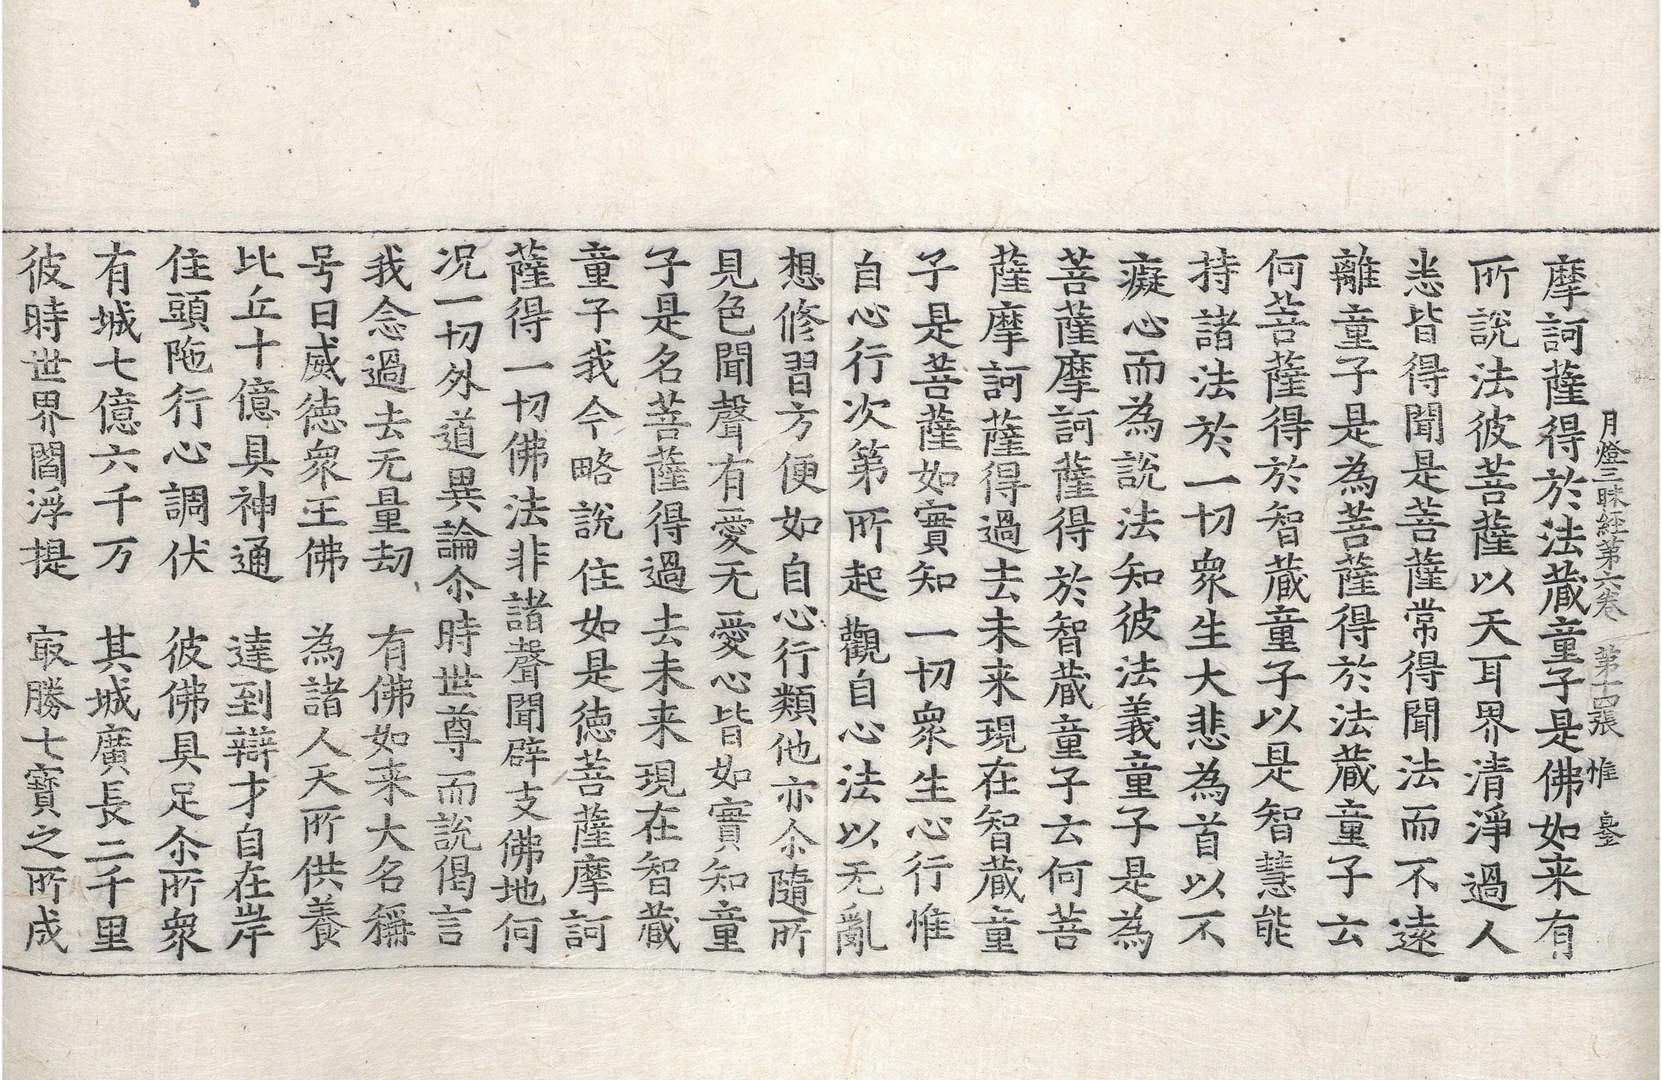 月燈三昧經第六卷 第十四張 惟
摩訶薩得於法藏童子是佛如来有
所說法彼菩薩以天耳界清淨過人
悉皆得聞是菩薩常得聞法而不遠
離童子是為菩薩得於法藏童子云
何菩薩得於智藏童子以是智慧能
持諸法於一切衆生大悲為首以不
癡心而為說法知彼法義童子是為
菩薩摩訶薩得於智藏童子云何菩
薩摩訶薩得過去未来現在智藏童
子是菩薩如實知一切衆生心行惟
自心行次第所起觀自心法以无亂
想修習方便如自心行類他亦尒隨所
見色聞聲有愛无愛心皆如實知童
子是名菩薩得過去未来現在智藏
童子我今略說住如是德菩薩摩訶
薩得一切佛法非諸聲聞辟支佛地何
况一切外道異論尒時世尊而說偈言
我念過去无量劫 有佛如来大名稱
号曰威德衆王佛 為諸人天所供養
比丘十億具神通 達到辯才自在岸
住頭陁行心調伏 彼佛具足尒所衆
有城七億六千万 其城廣長二千里
彼時世界閻浮提 㝡勝七寶之所成